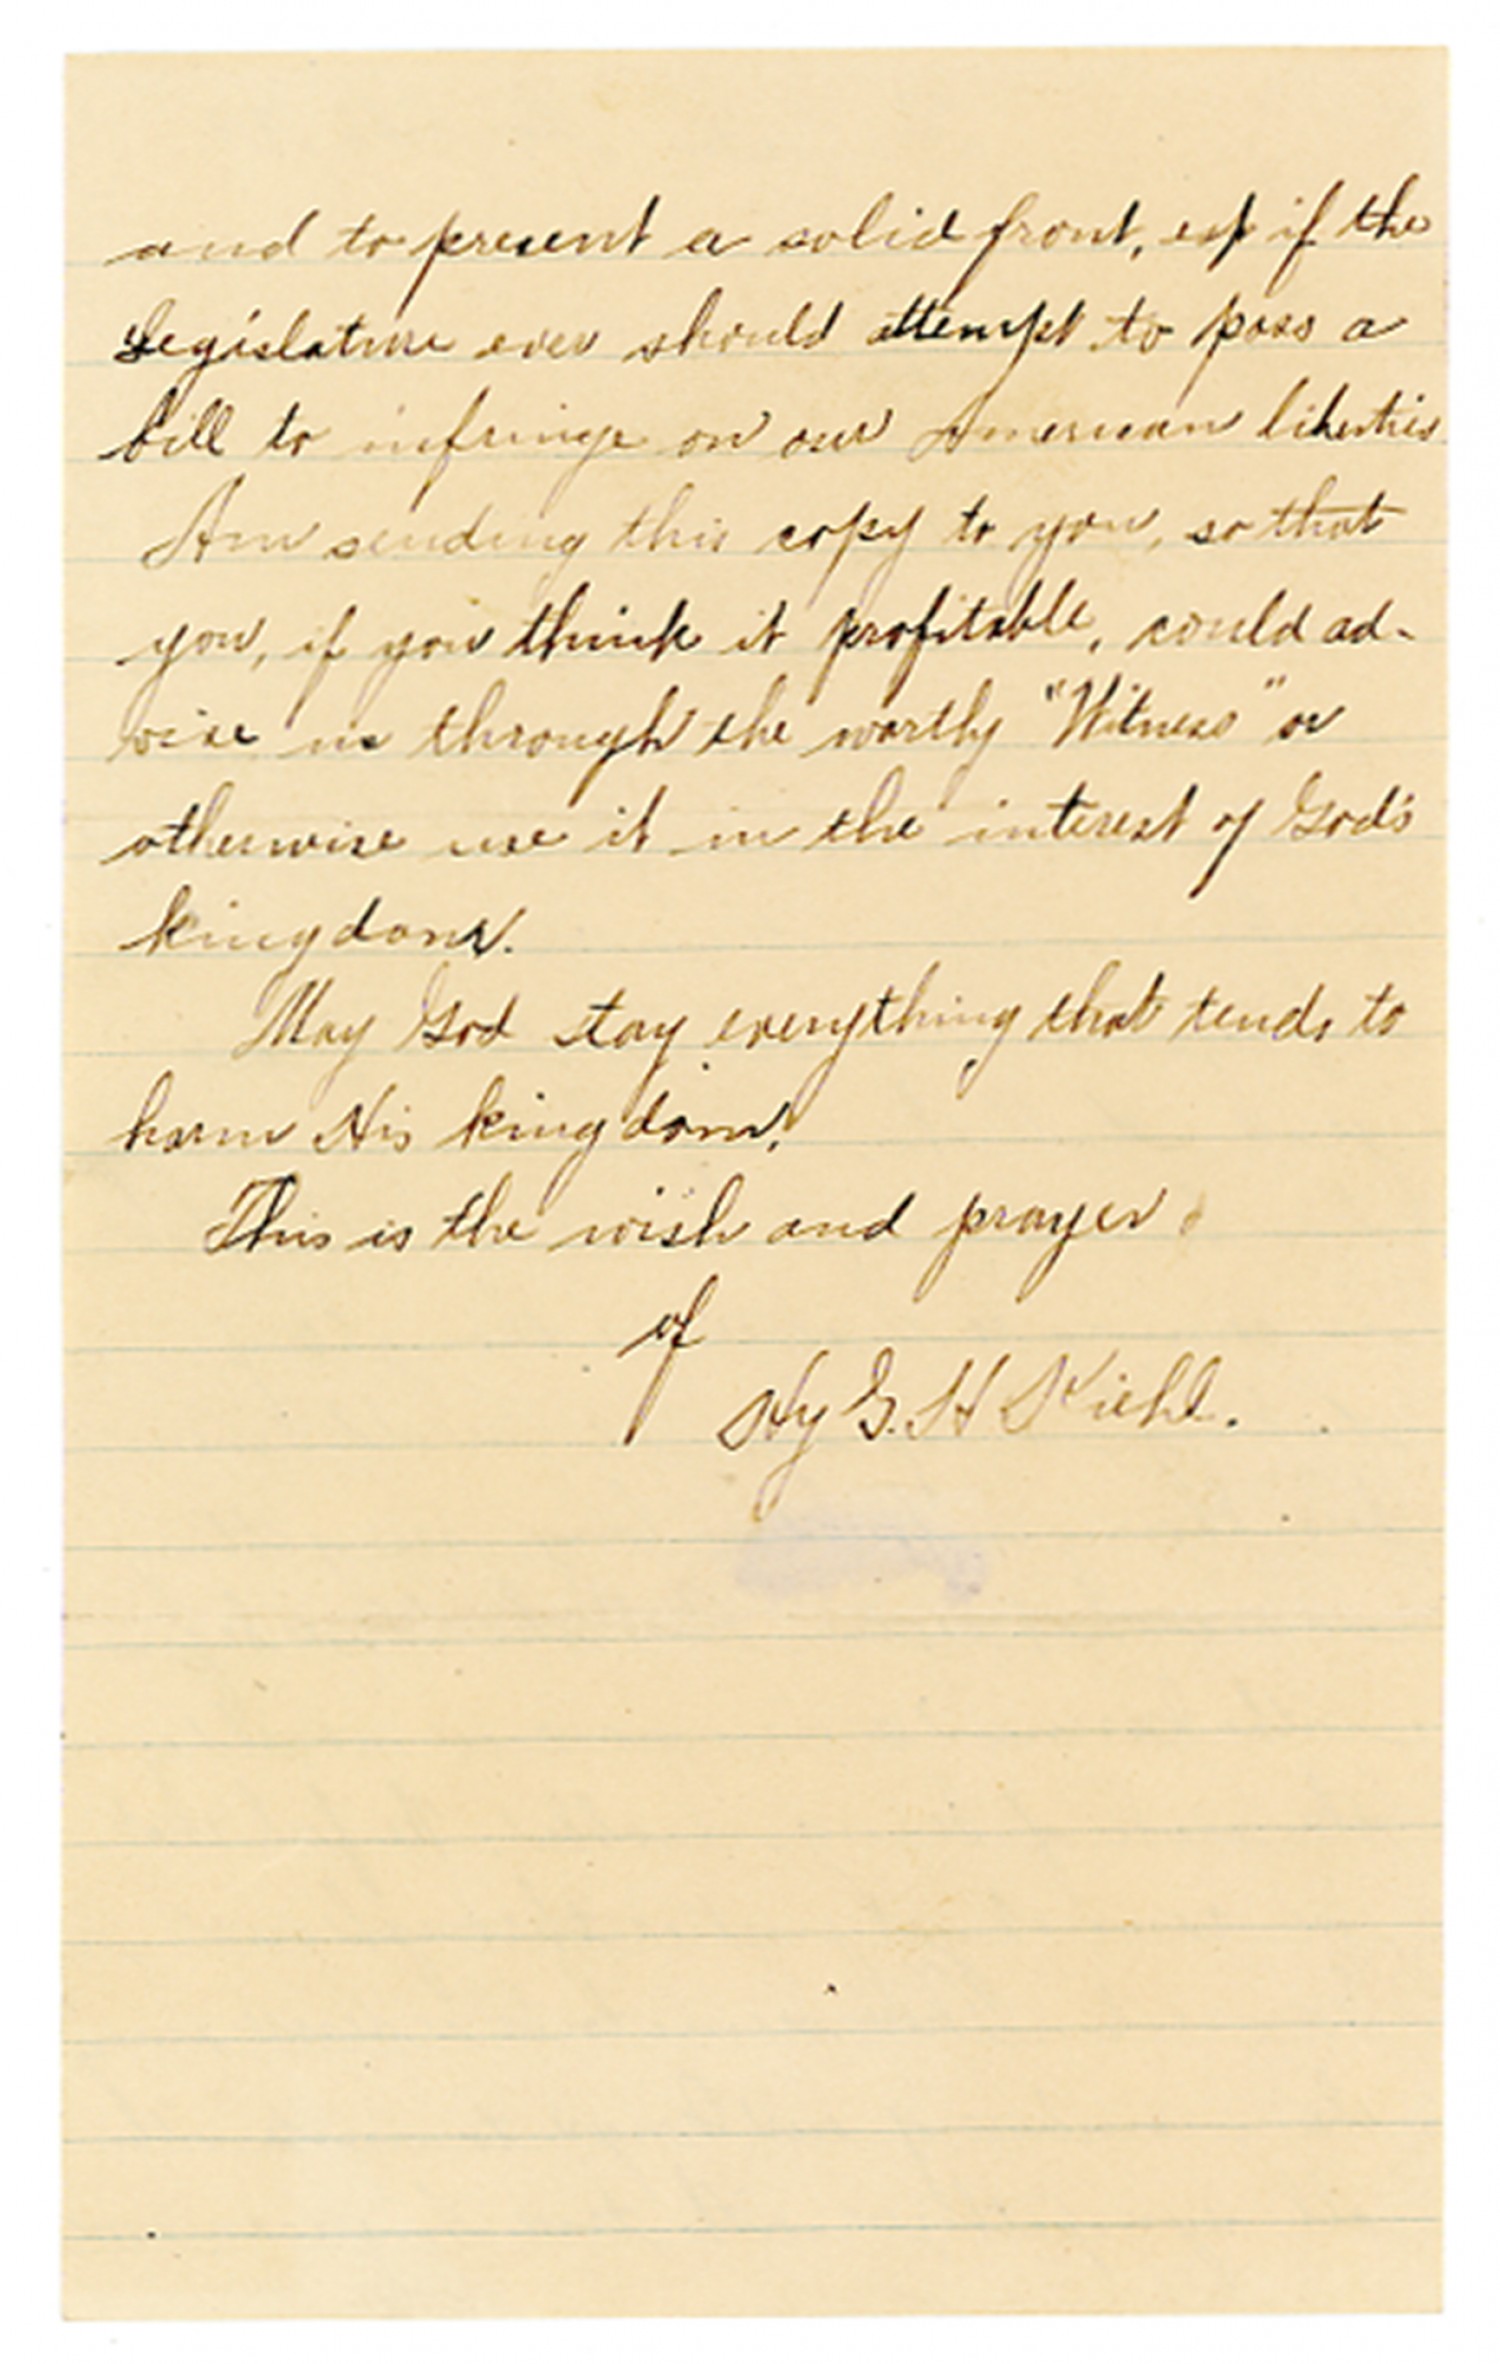 and to present a solid front, esp if the
Legislature ever should attempt to pass a
bill to infringe on our American liberties
Am sending this copy to you, so that
you, if you think it profitable, could ad-
vise us through the worthy "Witness" or
otherwise use it in the interest of God's
kingdom.
May God stay everything that tends to
harm His kingdom.
This is the wish and prayer
of
Hy G. H Kiehl.